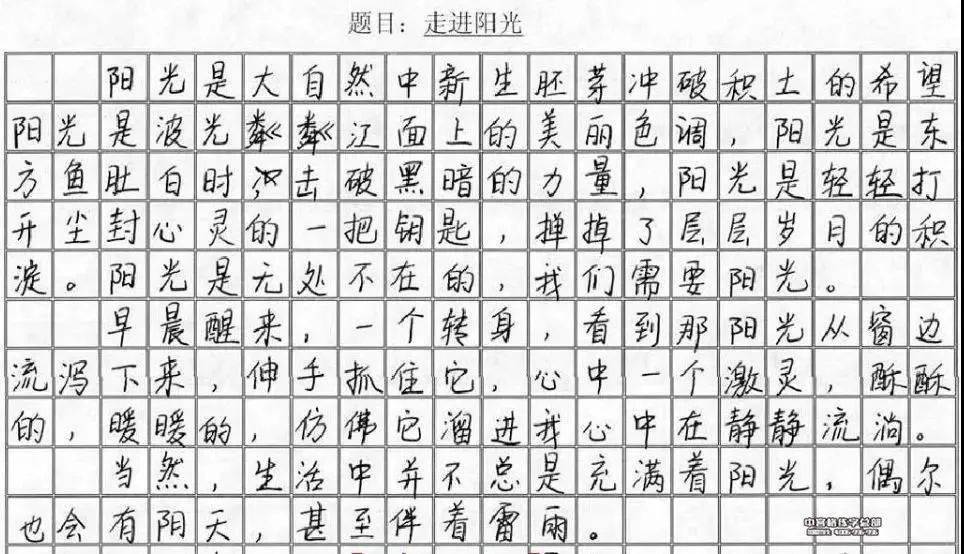 题目：走进阳光
阳光是大自然中新生胚芽冲破积土的希望
阳光是波光粼粼江面上的美丽色调，阳光是东
方鱼肚白时冲击破黑暗的力量，阳光是轻轻打
开尘封心灵的一把钥匙，掸掉了层层岁月的积
淀。阳光是无处不在的，我们需要阳光。
早晨醒来，一个转身，看到那阳光从窗边
流泻下来，伸手抓住它，心中一个激灵，酥酥
的，暖暖的，仿佛它溜进我心中在静静流淌。
当然，生活中并不总是充满着阳光，偶尔
也会有阴天，甚至伴着雷雨。